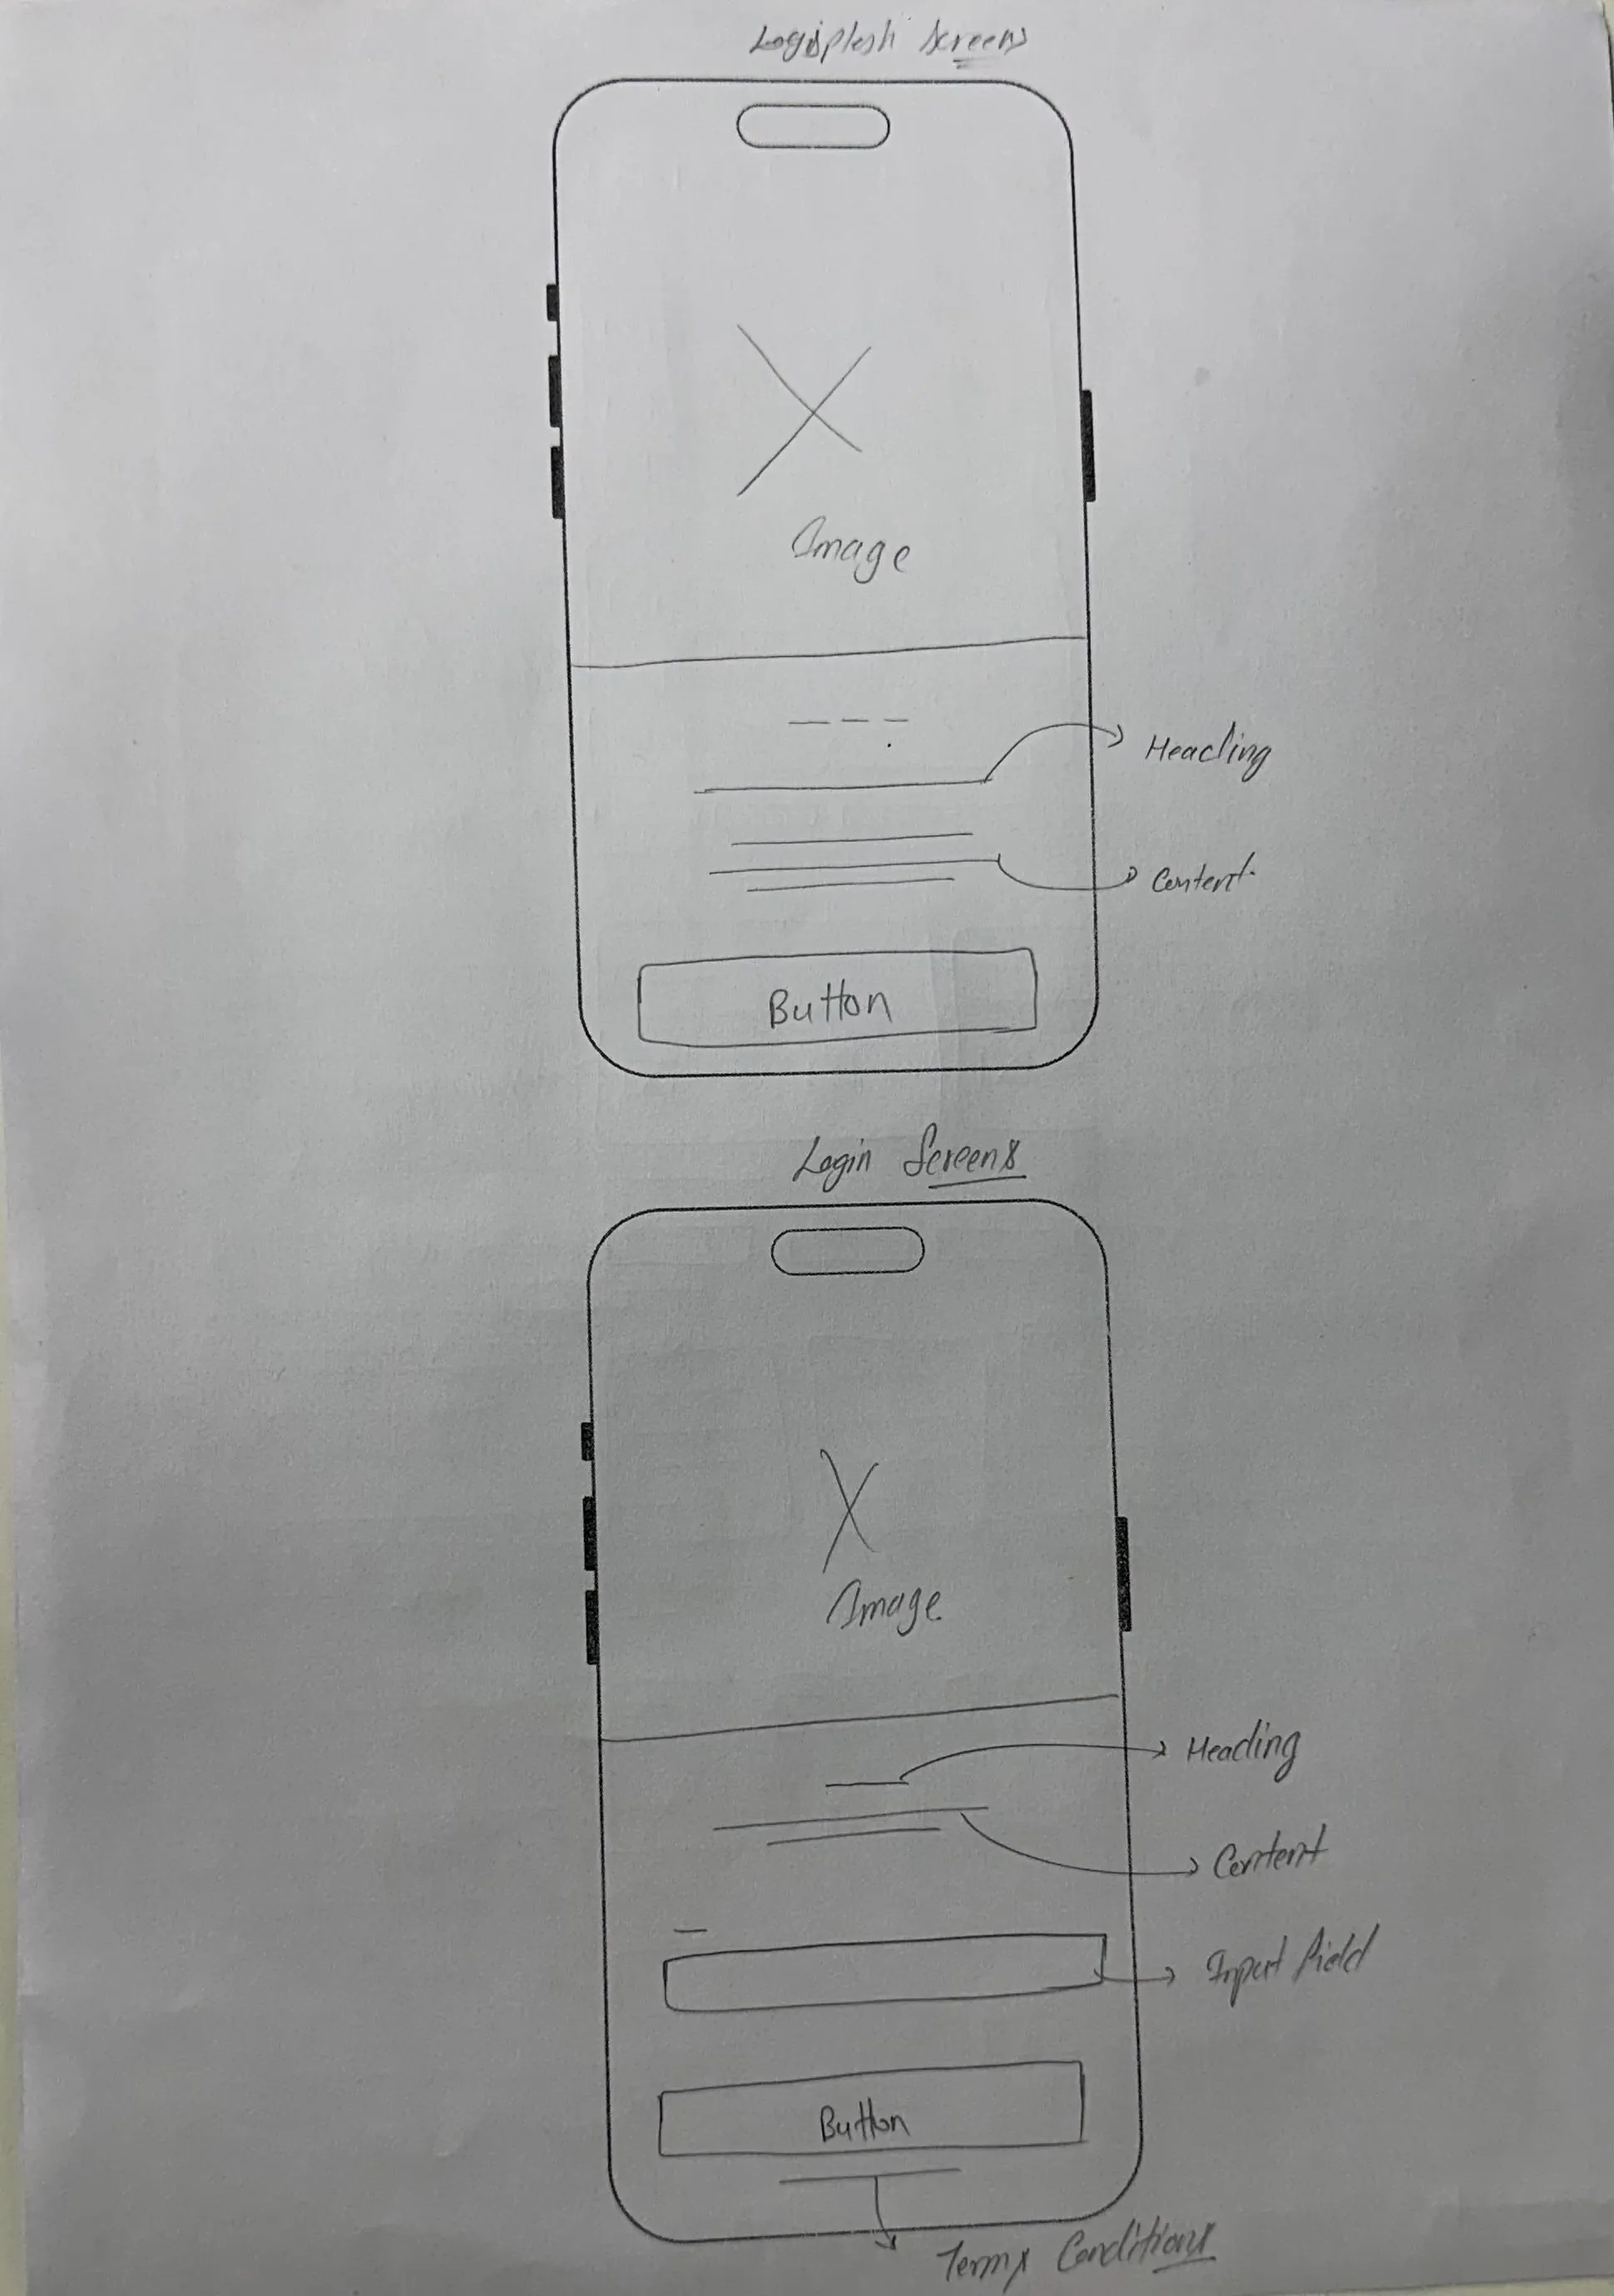 Splash Screens
Image
Heading
Content
Button
Login Screens
Image
Heading
Content
Input field
Button
Terms Conditions